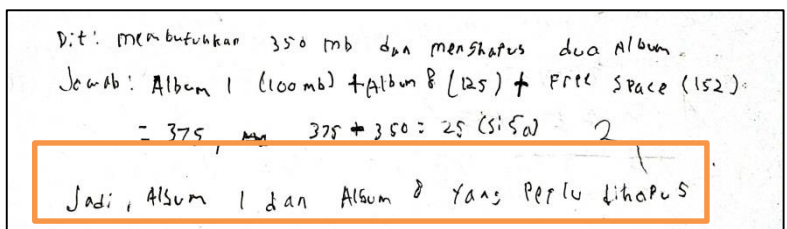 Dit: membutuhkan 350 mb dan menghapus dua Album.
Jawab: Album 1 (100 mb) + Album 8 (125) + Free Space (152).
= 375, 375 + 350 = 25 (Sisa) 2
Jadi, Album 1 dan Album 8 yang perlu dihapus